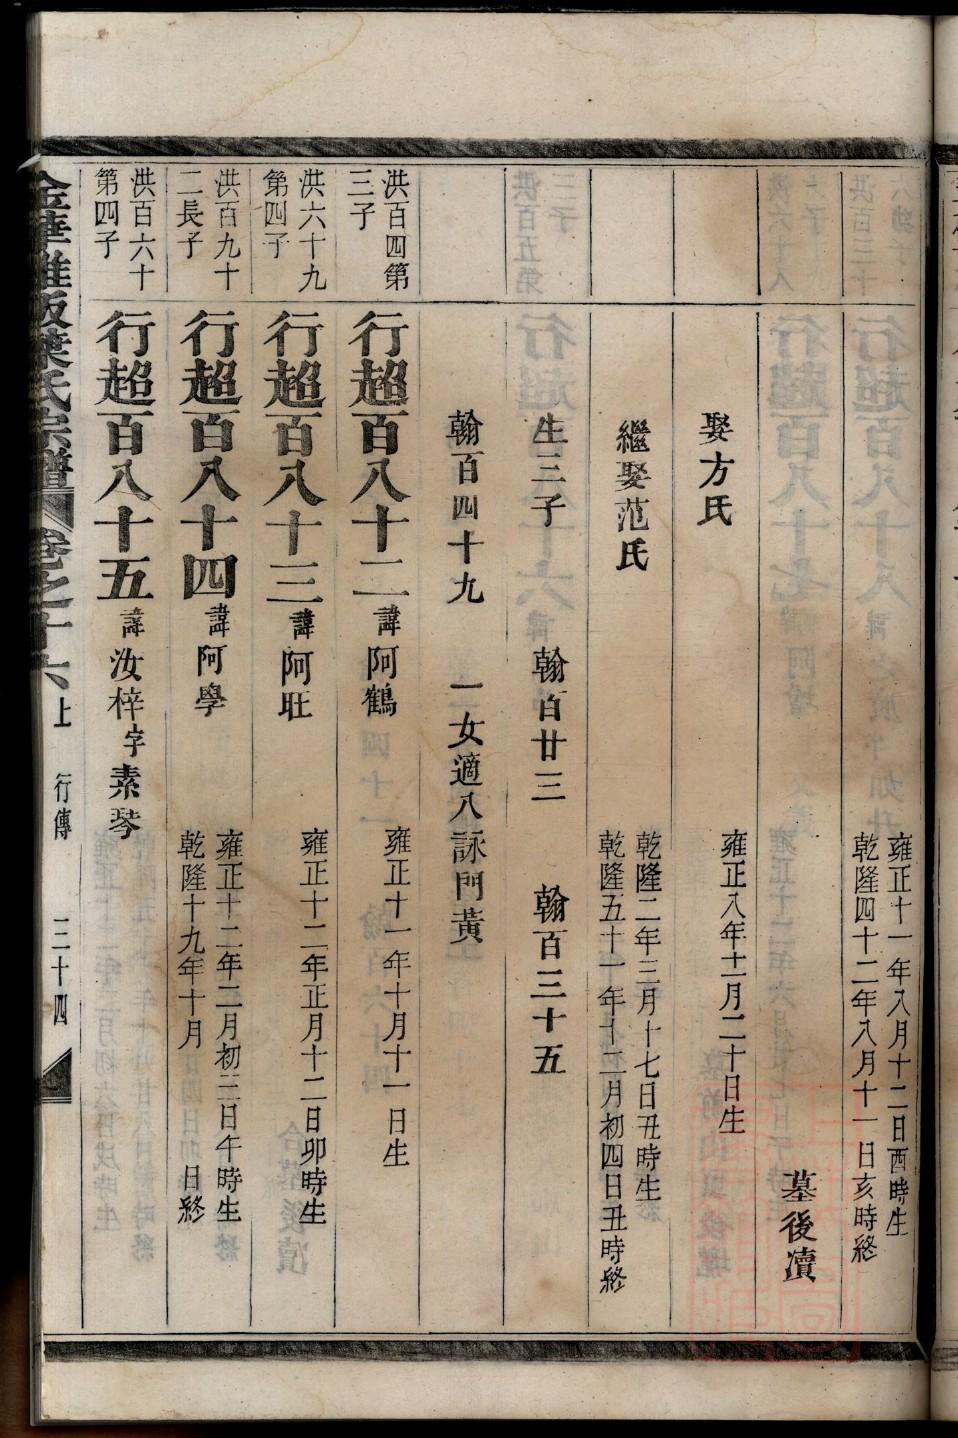 雍正十一年八月十二日酉時生
乾隆四十二年八月十一日亥時終
墓後瀆
娶方氏
雍正八年十一月二十日生
繼娶范氏
乾隆二年三月十七日丑時生
乾隆五十一年十二月初四日丑時終
生三子 翰百廿三 翰百三十五
翰百四十九 一女適八詠門黃
洪百四第
三子
行超百八十二 諱阿鶴
雍正十一年十月十一日生
洪六十九
第四子
行超百八十三 諱阿旺
雍正十二年正月十二日卯時生
洪百九十
二長子
行超百八十四 諱阿學
雍正十二年二月初三日午時生
乾隆十九年十月 日終
洪百六十
第四子
行超百八十五 諱汝梓字素琴
金華 阪葉氏宗譜 卷之十六上 行傳 三十四